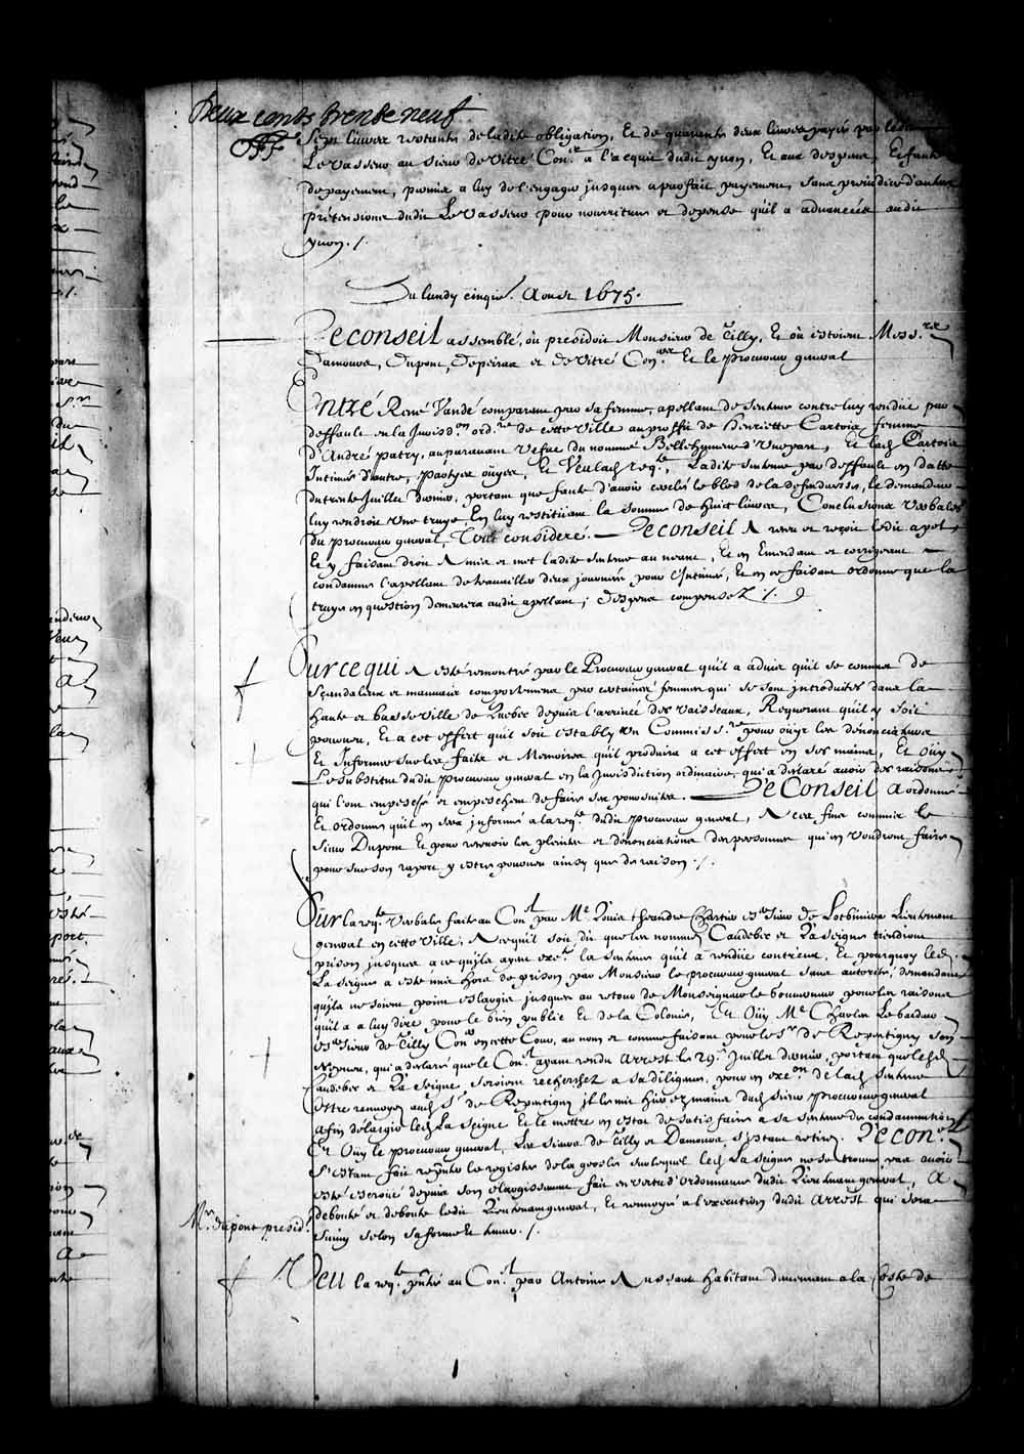 Deux cents trente neuf
Sept livres restants de ladite obligation, Et de quarante deux livres payés par led.
Levasseur au sieur de Vitré Con.er a l'acquit dudit yuon, Et aux despens, Et faute
de payement, permis a luy de l'engager jusques a parfait payement, sans prejudice d'autres
prétensions dudit Levasseur pour nourriture et depense qu'il a advancées audit
yuon ./.
Du lundy cinqie. Aoust 1675.
Le conseil assemblé, où presidoit Monsieur de Tilly, Et où estoient Mess.rs
Damours, Dupont, Depeiras et de Vitré Con.ers Et le procureur general
Entre René Vandé comparant par sa femme, apellant de sentence contre luy rendüe par
deffault en la Jurisd.on ord.re de cette Ville au proffit de Henriette Cartois femme
d'André patry, auparavant vefue du nommé Bellehumeur d'Vne part, Et lad. Cartois
Intimée d'autre, partyes oüyes, Et Veu lad. req.te, Ladite sentence par deffault en datte
du trente Juillet dernier, portant que faute d'avoir le bled de la deffenderesse, le demandeur
luy rendroit vne truye, En luy restituant la somme de huict livres, Conclusions verbales
du procureur general, Tout consideré. — Le conseil A receu et reçoit ledit apel
Et y faisant droit A mis et met ladite sentence au neant, Et en Emendant et corrigeant
condamne l'apellant de travailler deux journées pour l'Intimée, Et en ce faisant ordonne que la
truye en question demeurera audit apellant ; despens compensez ./.
Sur ce qui A esté remontré par le Procureur general qu'il a aduis qu'il se commet de
scandaleux et mauvais comportemens par certaines femmes qui se sont introduites dans la
haute et basse ville de Quebec depuis l'arrivée des vaisseaux, Requerant qu'il y soit
pourveu, Et a cet effect qu'il soit estably un Commiss.re pour oüyr les dénonciateurs
Et Informer sur les faits et Memoires qu'il produira a cet effect en ses mains, Et Oüy
Le substitut dudit procureur general en la Jurisdiction ordinaire, qui a declaré avoir des raisons
qui l'ont empesché et empeschent de faire ses poursuites. — Le Conseil A ordonné
Et ordonne qu'il en sera informé a la req.te dudit procureur general, A ces fins commis le
sieur Dupont Et pour recevoir les plaintes et dénonciations des personnes qui en voudront faire
pour sur son raport y estre pourveu ainsy que de raison ./.
Sur la req.te verbale faite au Con.l par M.e Louis theandre Chartier es.er sieur de Lotbiniere Lieutenant
general en cette Ville, A ce qu'il soit dit que les nommez Caudebec et La seigne tiendront
prison jusques a ce qu'ils ayent exe.té la sentence qu'il a rendüe contr'eux, Et pourquoy led.
La seigne a esté mis hors de prison par Monsieur le procureur general sans autorité, demandant
qu'ils ne soient point eslargis jusques au retour de Monseigneur le Gouverneur pour les raisons
qu'il a a luy dire pour le bien public Et de la Colonie, Et Oüy M.e Charles Le bardeur
es.er sieur de Tilly Con.er en cette Cour, au nom et comme faisant pour le s.r de Repentigny son
Nepveu, qui a declaré que le Con.l ayant rendu arrest le 29.e Juillet dernier, portant que lesd.
Caudebec et La Seigne, seroient recherchez a sa diligence, pour en exe.on de lad. sentence
estre renvoyez aud. s.r de Repentigny
afin d'eslargir led. La Seigne Et le mettre en estat de satisfaire a sa sentence de condamnation
Et Oüy le procureur general, Les sieurs de Tilly et Damours, s'estant retirez. Le con.l
S'estant fait representer le registre de la geosle sur lequel led. La seigne ne se trouve pas avoir
esté escroüé depuis son eslargissement fait en vertu d'ordonnance dudit Lieutenant general, A
debouté et deboute ledit Lieutenant general, Et renvoyé a l'execution dudit arrest qui sera
suivy selon sa forme Et teneur ./.
M.r dupont presid.t
Veu la req.te p.ntée au Con.l par Antoine habitant demeurant a la Coste de